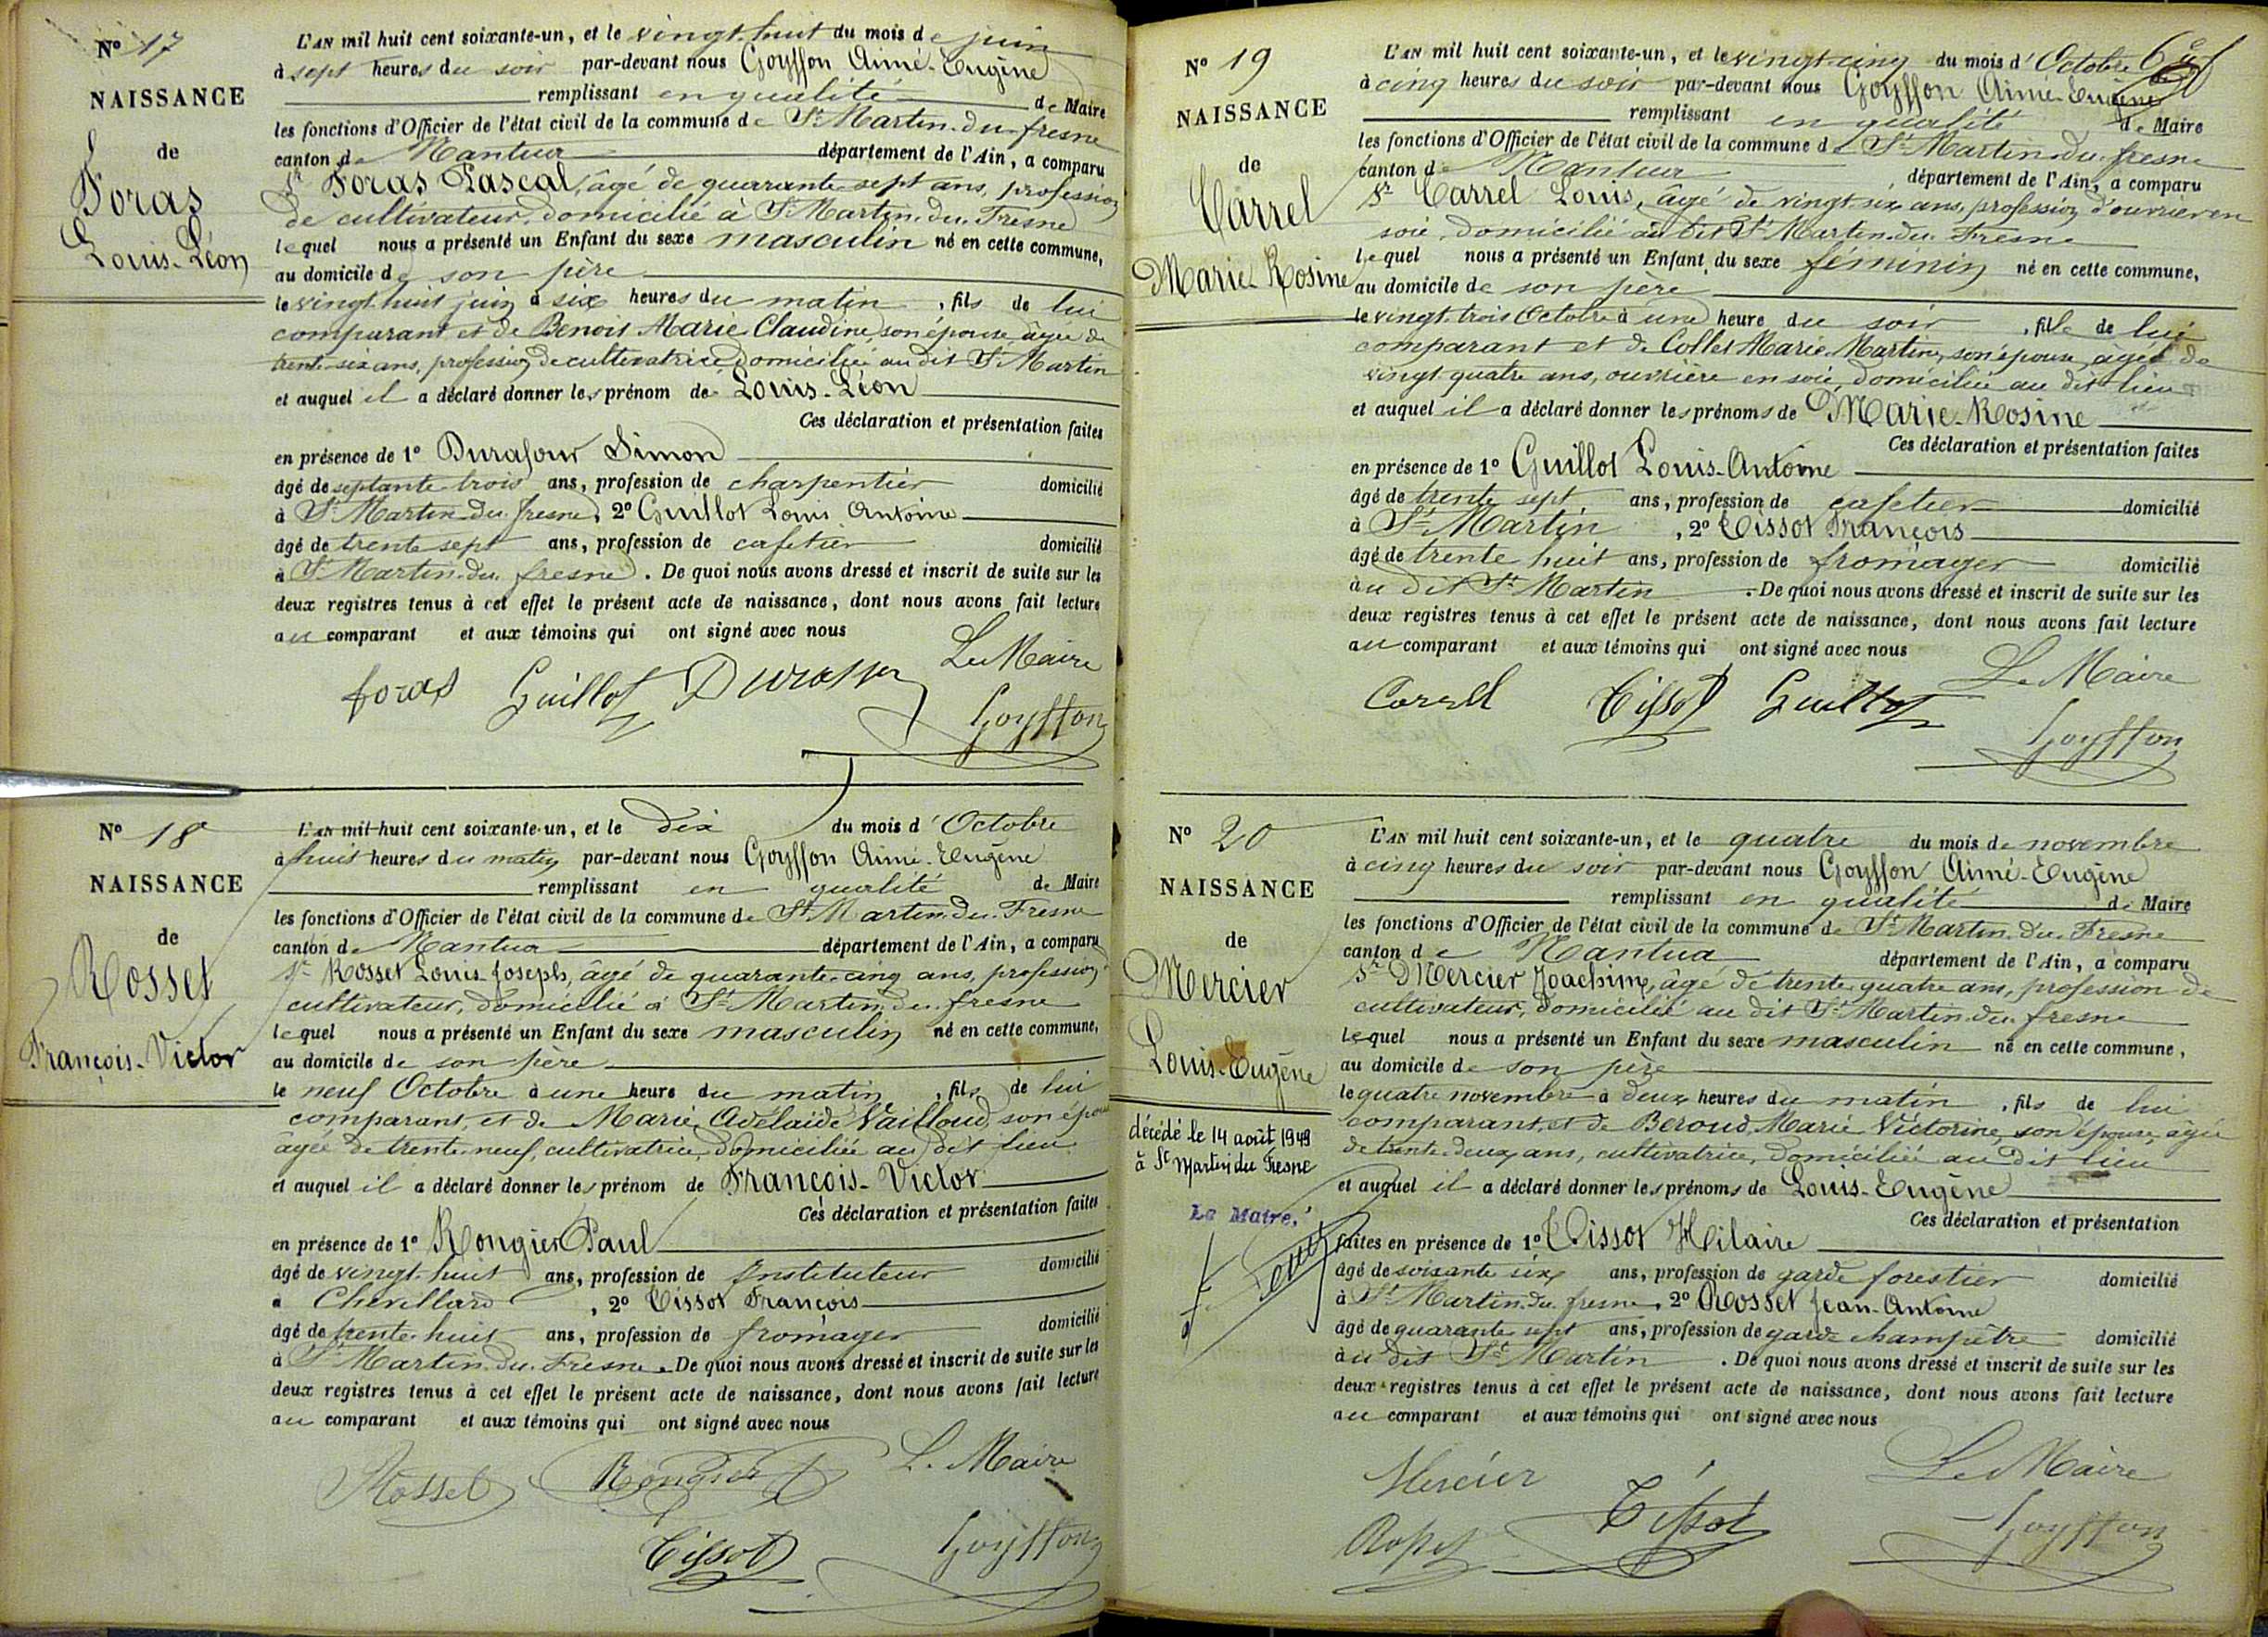 N° 17
NAISSANCE
de
Foras
Louis-Léon
L'AN mil huit cent soixante-un, et le vingt-huit du mois de juin
à sept heures du soir par-devant nous Goyffon Aimé-Eugène
remplissant en qualité de Maire
les fonctions d'Officier de l'état civil de la commune de St Martin-du-fresne
canton de Nantua département de l'Ain, a comparu
Sr Foras Pascal, âgé de quarrante-sept ans, profession
de cultivateur, domicilié à St Martin-du-Fresne
lequel nous a présenté un Enfant du sexe masculin né en cette commune,
au domicile de son père
le vingt-huit juin à six heures du matin, fils de lui
comparant et de Benoit Marie Claudine, son épouse, âgée de
trente-six ans, profession de cultivatrice, domiciliée au dit St Martin
et auquel il a déclaré donner les prénom de Louis-Léon
Ces déclaration et présentation faites
en présence de 1° Durafour Simon
âgé de septante trois ans, profession de charpentier domicilié
à St Martin-du-fresne, 2° Guillot Louis Antoine
âgé de trente sept ans, profession de cafetier domicilié
à St Martin-du-fresne. De quoi nous avons dressé et inscrit de suite sur les
deux registres tenus à cet effet le présent acte de naissance, dont nous avons fait lecture
au comparant et aux témoins qui ont signé avec nous
Le Maire
foras Guillot
Goyffon
N° 18
NAISSANCE
de
Rosset
François-Victor
L'AN mil huit cent soixante-un, et le dix du mois d'Octobre
à huit heures du matin par-devant nous Goyffon Aimé-Eugène
remplissant en qualité de Maire
les fonctions d'Officier de l'état civil de la commune de St Martin-du-Fresne
canton de Nantua département de l'Ain, a comparu
Sr Rosset Louis-Joseph, âgé de quarante-cinq ans, profession
cultivateur, domicilié à St Martin-du-fresne
lequel nous a présenté un Enfant du sexe masculin né en cette commune,
au domicile de son père
le neuf Octobre à une heure du matin, fils de lui
comparant, et de Marie Adélaïde Vailloud, son épouse
âgée de trente-neuf, cultivatrice, domiciliée au dit lieu
et auquel il a déclaré donner les prénom de François-Victor
Ces déclaration et présentation faites
en présence de 1° Rongier Paul
âgé de vingt-huit ans, profession de Instituteur domicilié
à Chevillard, 2° Tissot François
âgé de trente-huit ans, profession de fromager domicilié
à St Martin-du-Fresne. De quoi nous avons dressé et inscrit de suite sur les
deux registres tenus à cet effet le présent acte de naissance, dont nous avons fait lecture
au comparant et aux témoins qui ont signé avec nous
Rosset Rongier Le Maire
Tissot Goyffon
N° 19
NAISSANCE
de
Carrel
Marie-Rosine
L'AN mil huit cent soixante-un, et le vingt-cinq du mois d'Octobre
à cinq heures du soir par-devant nous Goyffon Aimé-Eugène
remplissant en qualité de Maire
les fonctions d'Officier de l'état civil de la commune de St Martin-du-fresne
canton de Nantua département de l'Ain, a comparu
Sr Carrel Louis, âgé de vingt-six ans, profession d'ouvrier en
soie, domicilié au dit St Martin-du-Fresne
lequel nous a présenté un Enfant du sexe féminin né en cette commune,
au domicile de son père
le vingt-trois Octobre à une heure du soir, fille de lui
comparant et de Collet Marie-Martine, son épouse, âgée de
vingt quatre ans, ouvrière en soie, domiciliée au dit lieu
et auquel il a déclaré donner les prénoms de Marie-Rosine
Ces déclaration et présentation faites
en présence de 1° Guillot Louis-Antoine
âgé de trente sept ans, profession de cafetier domicilié
à St Martin, 2° Tissot François
âgé de trente huit ans, profession de fromager domicilié
au dit St Martin. De quoi nous avons dressé et inscrit de suite sur les
deux registres tenus à cet effet le présent acte de naissance, dont nous avons fait lecture
au comparant et aux témoins qui ont signé avec nous
Le Maire
Carrel Tissot Guillot
Goyffon
N° 20
NAISSANCE
de
Mercier
Louis-Eugène
décédé le 14 août 1949
à St Martin du Fresne
Le Maire,
L'AN mil huit cent soixante-un, et le quatre du mois de novembre
à cinq heures du soir par-devant nous Goyffon Aimé-Eugène
remplissant en qualité de Maire
les fonctions d'Officier de l'état civil de la commune de St Martin-du-Fresne
canton de Nantua département de l'Ain, a comparu
Sr Mercier Joachim, âgé de trente quatre ans, profession de
cultivateur, domicilié au dit St Martin-du-fresne
lequel nous a présenté un Enfant du sexe masculin né en cette commune,
au domicile de son père
le quatre novembre à deux heures du matin, fils de lui
comparant, et de Beroud Marie Victorine, son épouse, âgée
de trente-deux ans, cultivatrice, domiciliée au dit lieu
et auquel il a déclaré donner les prénoms de Louis-Eugène
Ces déclaration et présentation
faites en présence de 1° Tissot Hilaire
âgé de soixante six ans, profession de garde forestier domicilié
à St Martin-du-fresne, 2° Rosset Jean-Antoine
âgé de quarante sept ans, profession de garde champêtre domicilié
au dit St Martin. De quoi nous avons dressé et inscrit de suite sur les
deux registres tenus à cet effet le présent acte de naissance, dont nous avons fait lecture
au comparant et aux témoins qui ont signé avec nous
Mercier Le Maire
Rosset Tissot Goyffon